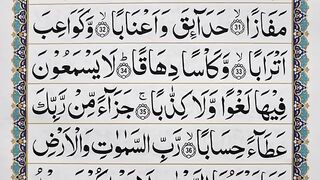 مَفَازًا ﴿31﴾ حَدَآئِقَ وَاَعْنَابًا ﴿32﴾ وَّكَوَاعِبَ
اَتْرَابًا ﴿33﴾ وَّكَاْسًا دِهَاقًا ﴿34﴾ لَا يَسْمَعُوْنَ
فِيْهَا لَغْوًا وَّلَا كِذّٰبًا ﴿35﴾ جَزَآءً مِّنْ رَّبِّكَ
عَطَآءً حِسَابًا ﴿36﴾ رَّبِّ السَّمٰوٰتِ وَالْاَرْضِ